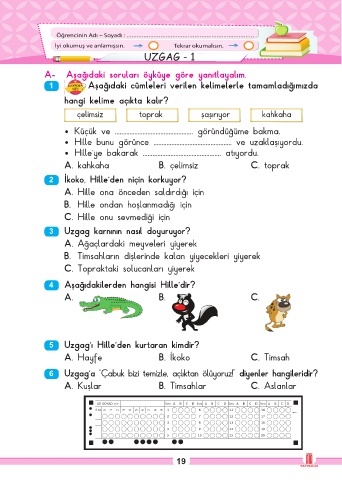 Öğrencinin Adı – Soyadı :
İyi okumuş ve anlamışsın.
Tekrar okumalısın.
UZGAG - 1
A- Aşağıdaki soruları öyküye göre yanıtlayalım.
1 Aşağıdaki cümleleri verilen kelimelerle tamamladığımızda
hangi kelime açıkta kalır?
çelimsiz toprak şaşırıyor kahkaha
• Küçük ve ........................ göründüğüme bakma.
• Hille bunu görünce ........................ ve uzaklaşıyordu.
• Hille'ye bakarak ........................ atıyordu.
A. kahkaha B. çelimsiz C. toprak
2 İkoko, Hille'den niçin korkuyor?
A. Hille ona önceden saldırdığı için
B. Hille ondan hoşlanmadığı için
C. Hille onu sevmediği için
3 Uzgag karnının nasıl doyuruyor?
A. Ağaçlardaki meyveleri yiyerek
B. Timsahların dişlerinde kalan yiyecekleri yiyerek
C. Topraktaki solucanları yiyerek
4 Aşağıdakilerden hangisi Hille'dir?
A. B. C.
5 Uzgag'ı Hille'den kurtaran kimdir?
A. Hayfe B. İkoko C. Timsah
6 Uzgag'a "Çabuk bizi temizle, açlıktan ölüyoruz!" diyenler hangileridir?
A. Kuşlar B. Timsahlar C. Aslanlar
19